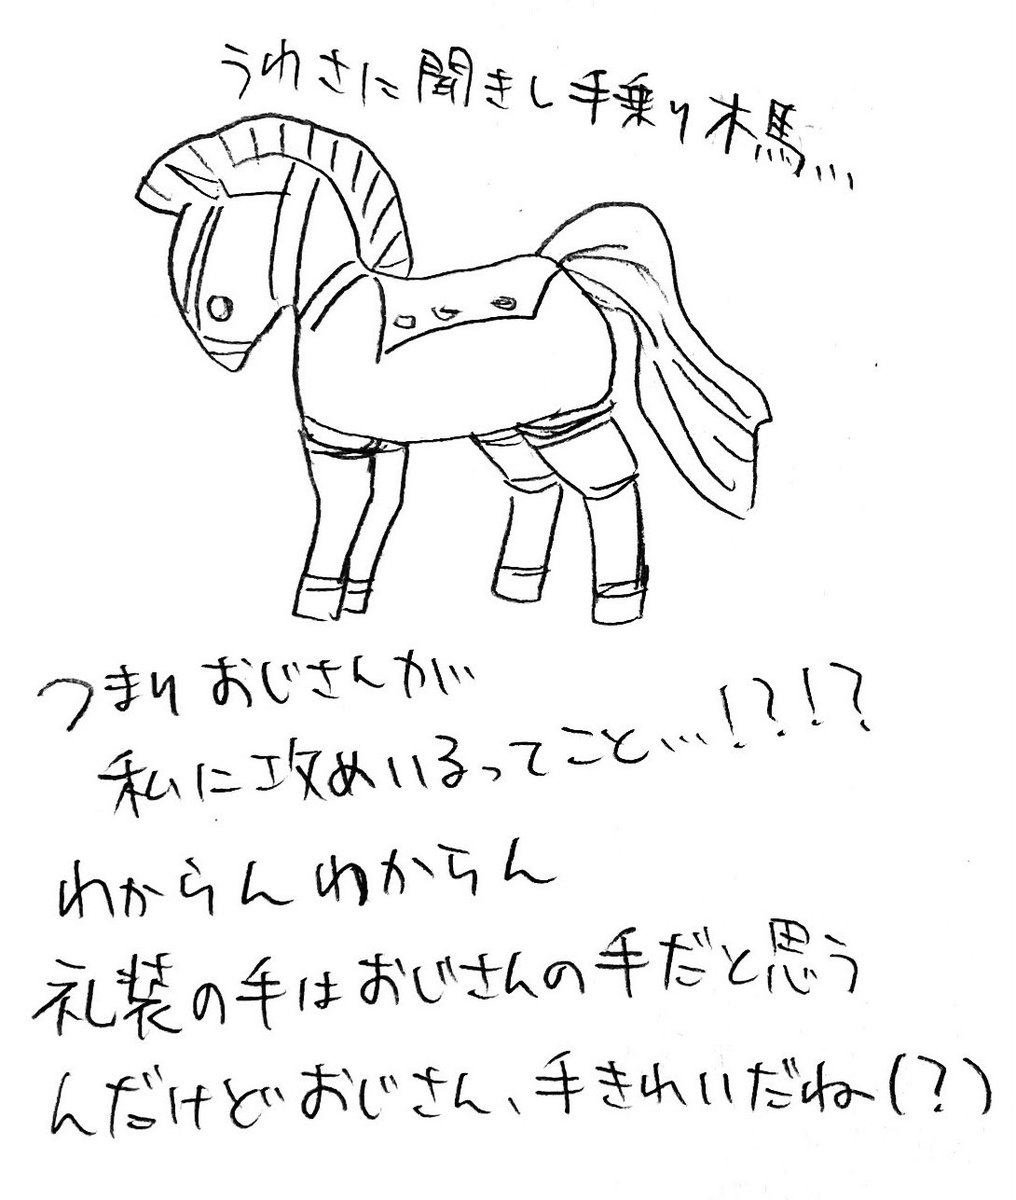 うわさに聞きし手乗り木馬…
つまりおじさんが
私に攻めいるってこと…!?!?
わからんわからん
礼装の手はおじさんの手だと思う
んだけどおじさん、手きれいだね(?)